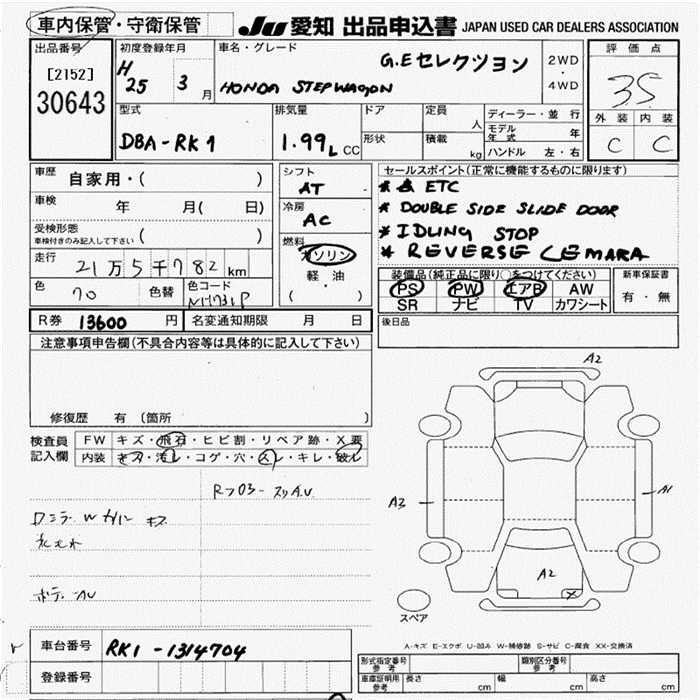 車内保管・守衛保管
JU 愛知 出品申込書 JAPAN USED CAR DEALERS ASSOCIATION
出品番号
[2152]
30643
初度登録年月
H 25 3 月
車名・グレード
G.Eセレクション
HONDA STEPWAGON
2WD
・
4WD
評価点
35
外装 内装
C C
型式
DBA-RK1
排気量
1.99L CC
ドア
形状
定員 人
積載 kg
ディーラー・並行
モデル年式 年
ハンドル 左・右
車歴 自家用・( )
車検 年 月( 日)
受検形態
車検付きのみ記入して下さい ( )
走行 21万5千782km
色 70 色替 色コード NH731P
シフト
AT
冷房
AC
燃料
ガソリン
・
軽油
( )
セールスポイント(正常に機能するものに限ります)
* ETC
* DOUBLE SIDE SLIDE DOOR
* IDLING STOP
* REVERSE CEMARA
装備品(純正品に限り○をつけてください)
PS PW エアB AW
SR ナビ TV カワシート
新車保証書
有・無
R券 13600 円 名変通知期限 月 日
後日品
注意事項申告欄(不具合内容等は具体的に記入して下さい)
修復歴 有 (箇所
検査員
記入欄
FW キズ・飛石・ヒビ割・リペア跡・X要
内装 キズ・汚レ・コゲ・穴・スレ・キレ・破レ
A2
A3
A1
A2
X
スペア
A-キズ E-エクボ U-凹み W-補修跡 S-サビ C-腐食 XX-交換済
車台番号 RK1-1314704
登録番号
型式指定番号
参考
類別区分番号
参考
車庫証明用
参考
長さ cm 幅 cm 高さ cm